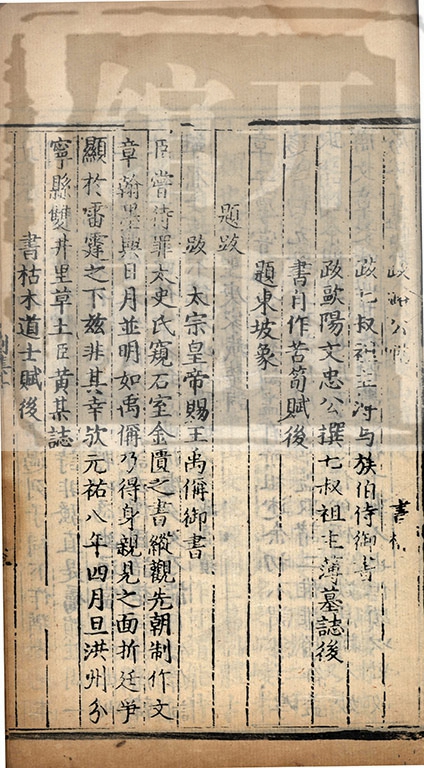 跋七叔祖主簿与族伯侍御書
跋歐陽文忠公撰七叔祖主薄墓誌後
書自作苦筍賦後
題東坡象
題跋
跋 太宗皇帝賜王禹偁御書
臣嘗待罪太史氏窺石室金匱之書縱觀先朝制作文
章翰墨與日月並明如禹偁乃得身親見之面折廷爭
顯於雷霆之下茲非其幸欤元祐八年四月旦洪州分
寧縣雙井里草土臣黄某誌
書枯木道士賦後